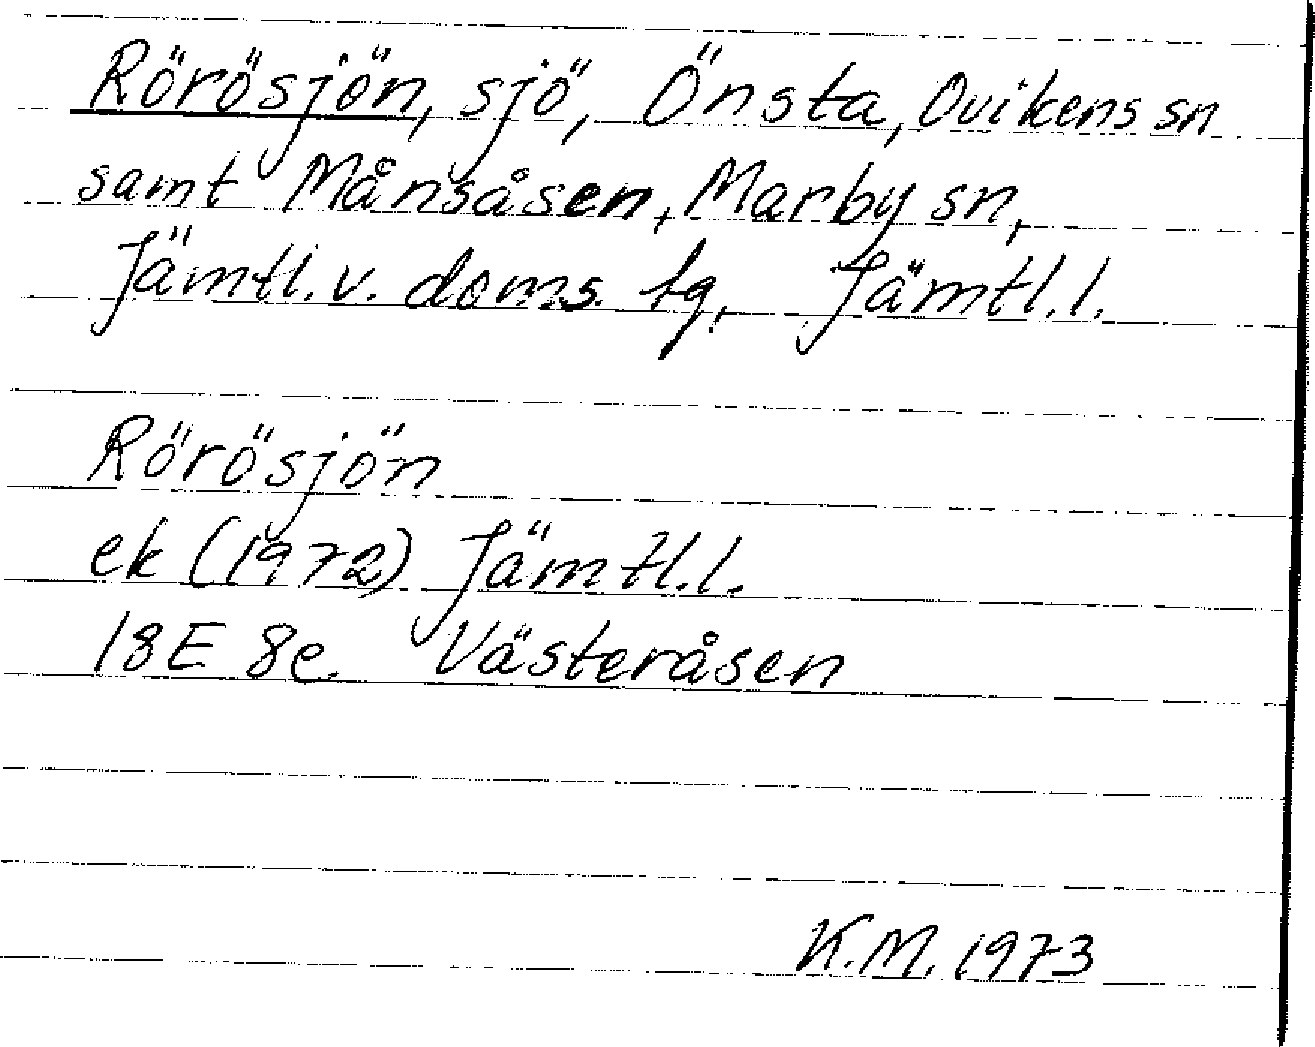 Rörösjön, sjö, Önsta, Ovikens sn
samt Månsåsen, Marby sn,
Jämtl. v. doms. tg, Jämtl. l.
Rörösjön
ek (1972) Jämtl. l.
18E 8e Västeråsen
K.M. 1973